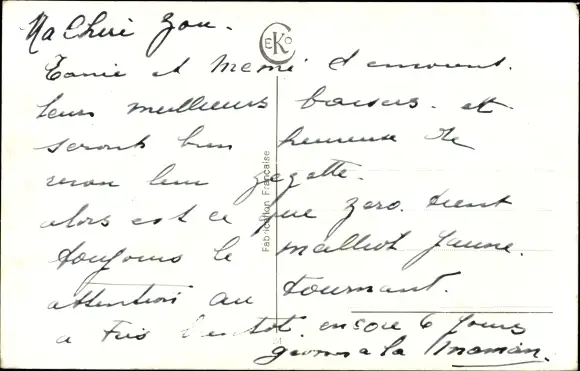 Ma Cheri Zou.
CEKO
Tonie et Mémé t'envoient.
leurs meilleurs baisers. et
seront bien heureuse de
revoir leur zézette.
alors est ce que zero. tient
toujours le maillot jaune.
attention au tournant.
a bientot. encore 6 jours
a la maman.
Fabrication Française